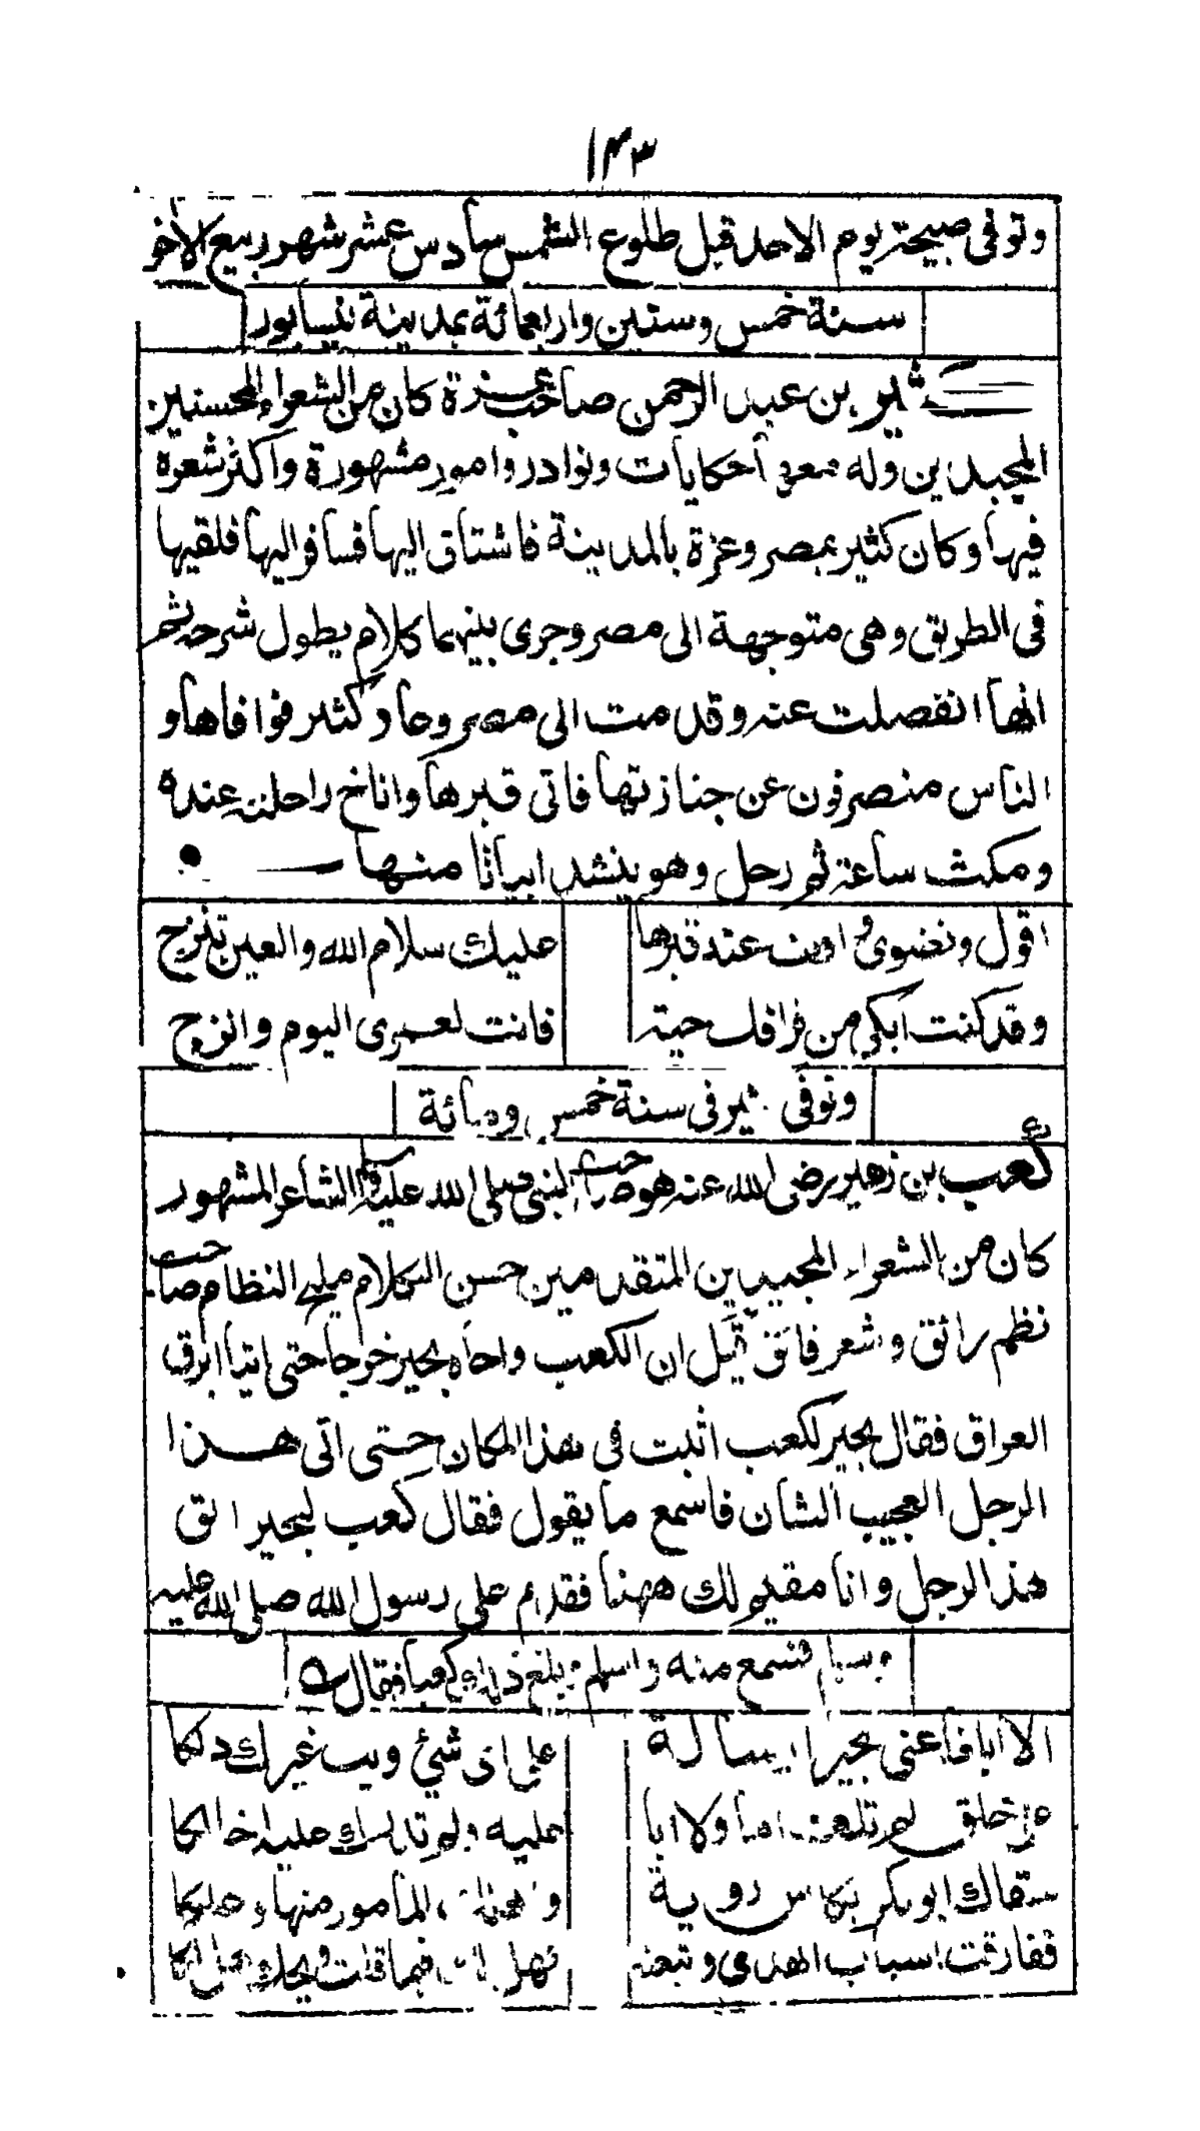 ١٤٣
وتوفى صبيحة يوم الاحد قبل طلوع الشمس سادس عشر شهر ربيع الاخر
سنة خمس وستين واربعمائة بمدينة نيسابور
كثير بن عبد الرحمن صاحب عزة كان من الشعراء المحسنين
المجيدين وله معها حكايات ونوادر وامور مشهورة واكثر شعره
فيها وكان كثير بمصر وعزة بالمدينة فاشتاق اليها فسافر اليها فلقيها
فى الطريق وهى متوجهة الى مصر وجرى بينهما كلام يطول شرحه ثم
انها انفصلت عنه وقدمت الى مصر وعاد كثير فوافاها و
الناس منصرفون عن جنازتها فاتى قبرها واناخ راحلته عنده
ومكث ساعة ثم رحل وهو ينشد ابياتا منها
اقول ونضوى واقف عند قبرها عليك سلام الله والعين تنزح
وقد كنت ابكى من فراقك حية فانت لعمرى اليوم وانزح
وتوفى كثير فى سنة خمس ومائة
كعب بن زهير رضى الله عنه هو صاحب النبى صلى الله عليه الشاعر المشهور
كان من الشعراء المجيدين المتقدمين حسن الكلام مليح النظام صاحب
نظم رائق وشعر فائق قيل ان الكعب واخاه بجير خرجا حتى اتيا ابرق
العراق فقال بجير لكعب اثبت فى هذا المكان حتى اتى هذا
الرجل العجيب الشان فاسمع ما يقول فقال كعب لبجير الق
هذا الرجل وانا مقيم لك ههنا فقدم على رسول الله صلى الله عليه
وسلم فسمع منه واسلم وبلغ ذلك كعبا فقال
الا ابلغا عنى بجيرا رسالة على اى شئ ويب غيرك دلكا
على خلق لم تلف اما ولا ابا عليه ولم تدرك عليه اخا لكا
سقاك ابو بكر بكاس روية المامور منها وعلكا
ففارقت اسباب الهدى وتبعته فهل لك فيما قلت ويحك هل لكا